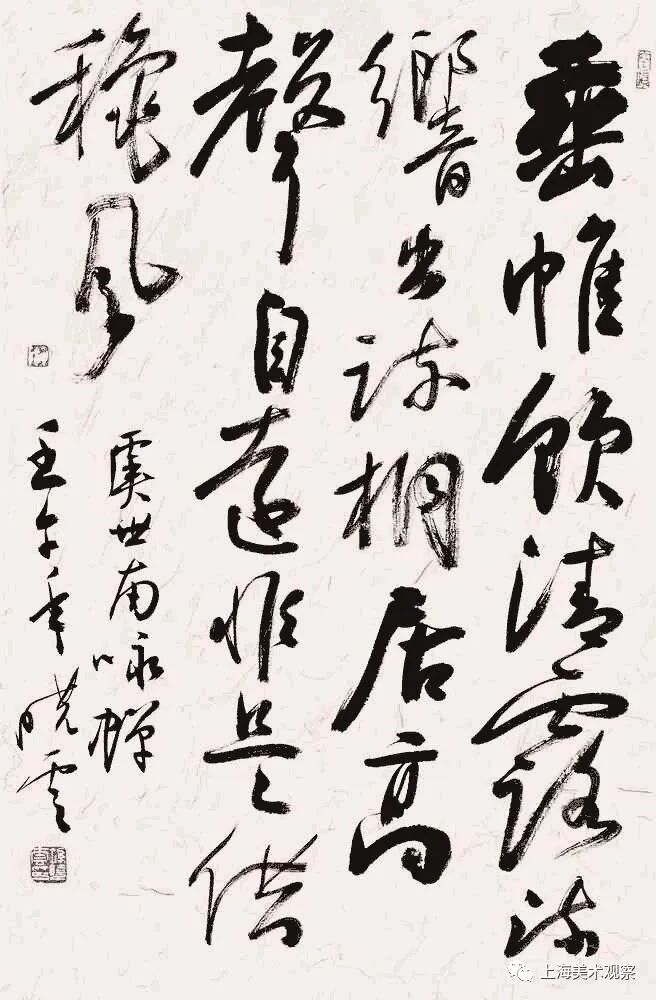 垂帷飲清露流
響出疎桐居高
聲自遠非是借
穐風
虞世南咏蟬
壬午年曉雲
上海美术观察